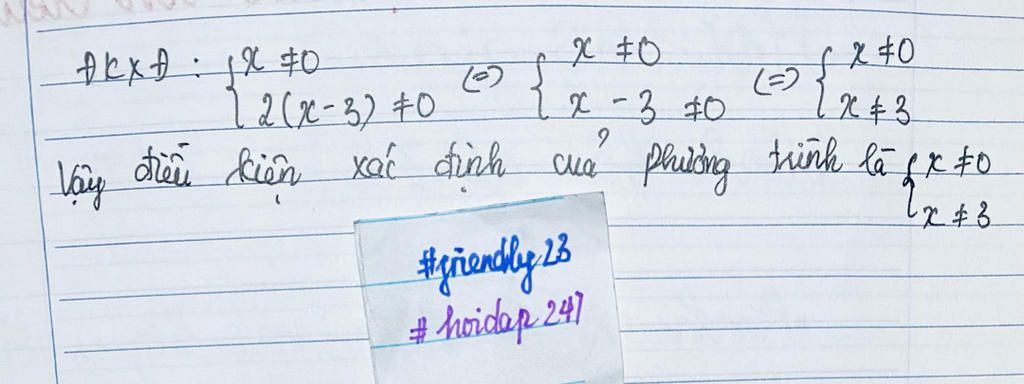 ĐKXĐ : { x ≠ 0 (=) { x ≠ 0 (=) { x ≠ 0
2(x - 3) ≠ 0 x - 3 ≠ 0 x ≠ 3
Vậy điều kiện xác định của phương trình là { x ≠ 0
x ≠ 3
#friendly23
# hoidap 247